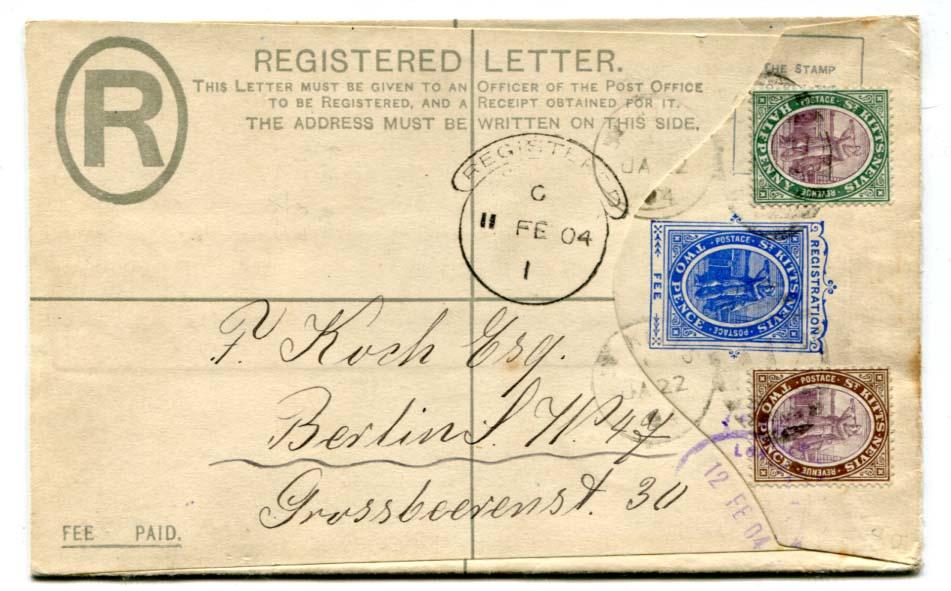 R
REGISTERED LETTER.
THIS LETTER MUST BE GIVEN TO AN OFFICER OF THE POST OFFICE
TO BE REGISTERED, AND A RECEIPT OBTAINED FOR IT.
THE ADDRESS MUST BE WRITTEN ON THIS SIDE.
THE STAMP
POSTAGE
ST KITTS-NEVIS
HALFPENNY
REVENUE
JA 22
04
REGISTERED
C
11 FE 04
1
REGISTRATION
FEE
POSTAGE
ST KITTS-NEVIS
TWO PENCE
POSTAGE
JA 22
POSTAGE
ST KITTS-NEVIS
TWO PENCE
REVENUE
F. Koch Esq.
Berlin S. W. 47
Grossbeerenst. 30
12 FE 04
FEE PAID.